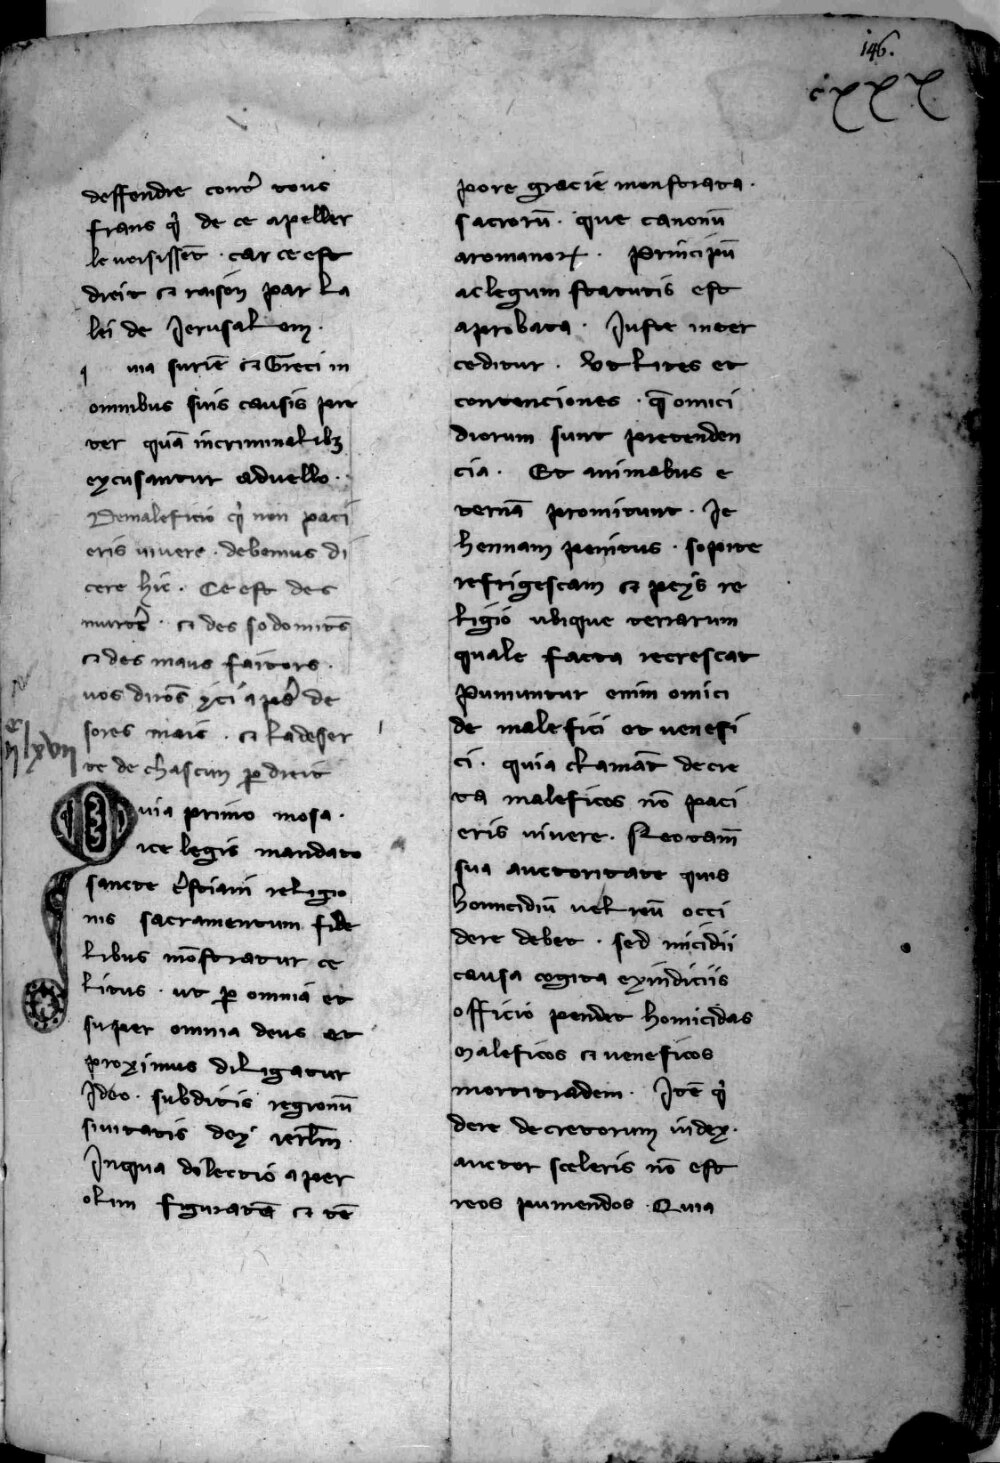 146.
cxxx
deffendre contr̉ tous
frans q̉ de ce apeller
le uoisissēt · car ce est
dreit ⁊ raison par la
lei de Jerusalem ·
uia suriē ⁊ Greci in
omnibus suis causis pre
ter quā incriminalibꝫ
excusantur aduello ·
Demaleficio q̉ non paci
eris uiuere · debemus di
cere hic · Ce est des
murtr̉ · ⁊ des sodomits
⁊ des maus faitors ·
uos dirōs yci apr̉s de
sores mais · ⁊ la deser
te de chascun ꝑ dreit
ec
ii lxvii
Quia primo mosa ·
ice legis mandato
sancte c̉stiani religio
nis sacramentum fide
libus mōstratur ce
litus · ut ꝑ omnia et
super omnia deus et
proximus diligatur
Ideo · subditis regionū
siuitatis dei ierlm̄ ·
Inqua dilectio aper
olim figuratā ⁊ tē
pore gracie monstrata ·
sacrorū · que canonū
aromanoꝝ · Principū
ac legum statutis est
aprobata · Iuste inter
ceditur · Vt lites et
contenciones · q̄ omici
diorum sunt pretenden
cia · Et animabus e
ternā promitunt · Je
hennam penitus · sopite
refrigescam ⁊ peys re
ligio ubique terrarum
quale facta recrescat
Pununtur enim omici
de malefici et uenefi
ci · quia clamāt decre
ta maleficos nō paci
eris uiuere · Nec tam̄
sua auctoritate quis
homicidiū uel reū occi
dere debet · sed micidii
causa cogita exindiciis
officio pendet homicidas
maleficos ⁊ ueneficos
mortitradem · Itē q̉
dere decretorum iudex ·
auctor sceleris nō est
reos puniendos · Quia